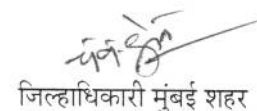 जिल्हाधिकारी मुंबई शहर